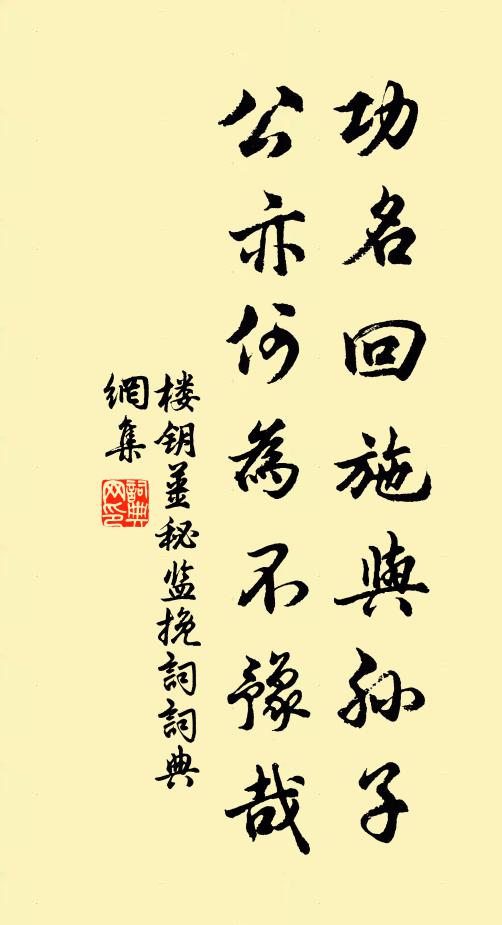 功名回施與孙子
公亦何為不豫哉
楼钥姜秘监挽詞詞典
網集
詞典
网印